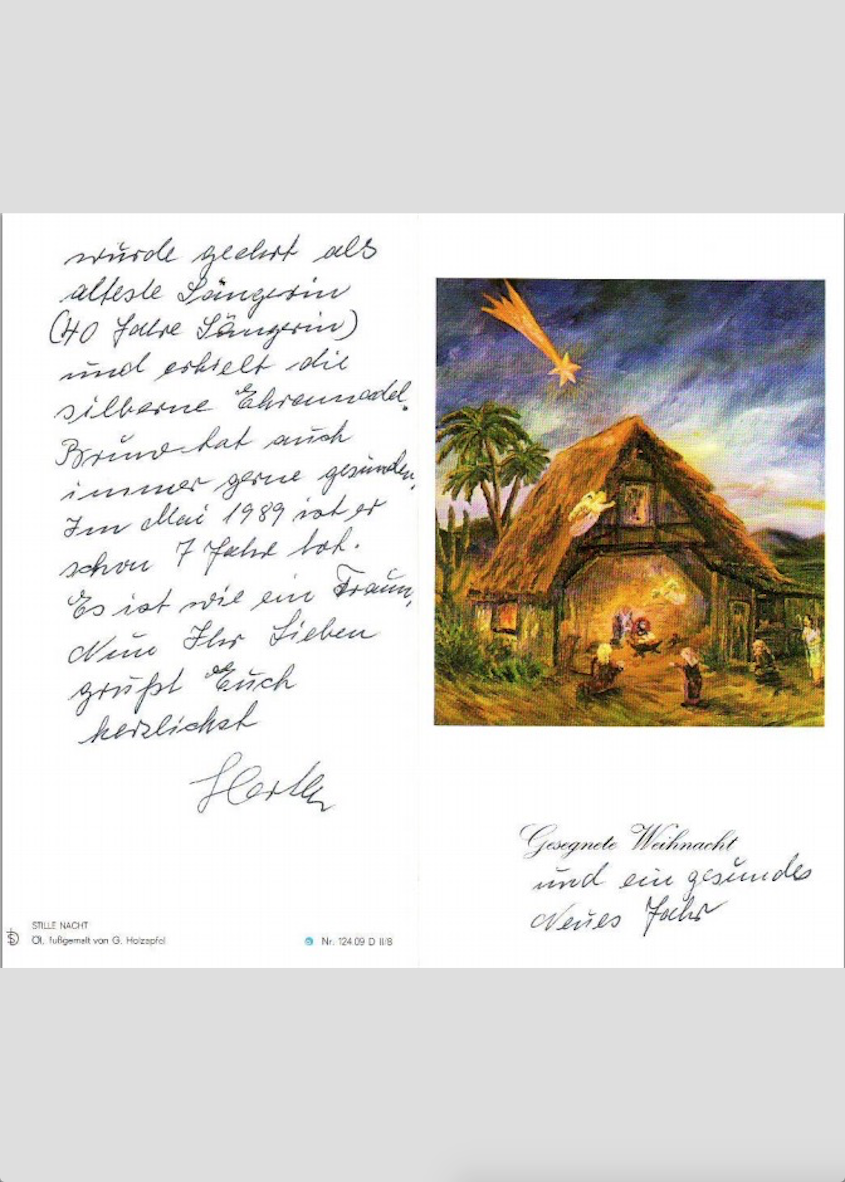 wurde geehrt als
älteste Sängerin
(40 Jahre Sängerin)
und erhielt die
silberne Ehrennadel.
Bruno hat auch
immer gerne gesungen.
Im Mai 1989 ist er
schon 7 Jahre tot.
Es ist wie ein Traum.
Nun Ihr Lieben
grüßt Euch
herzlichst
Hertha
STILLE NACHT
Öl, fußgemalt von G. Holzapfel
Nr. 124.09 D II/8
Gesegnete Weihnacht
und ein gesundes
Neues Jahr